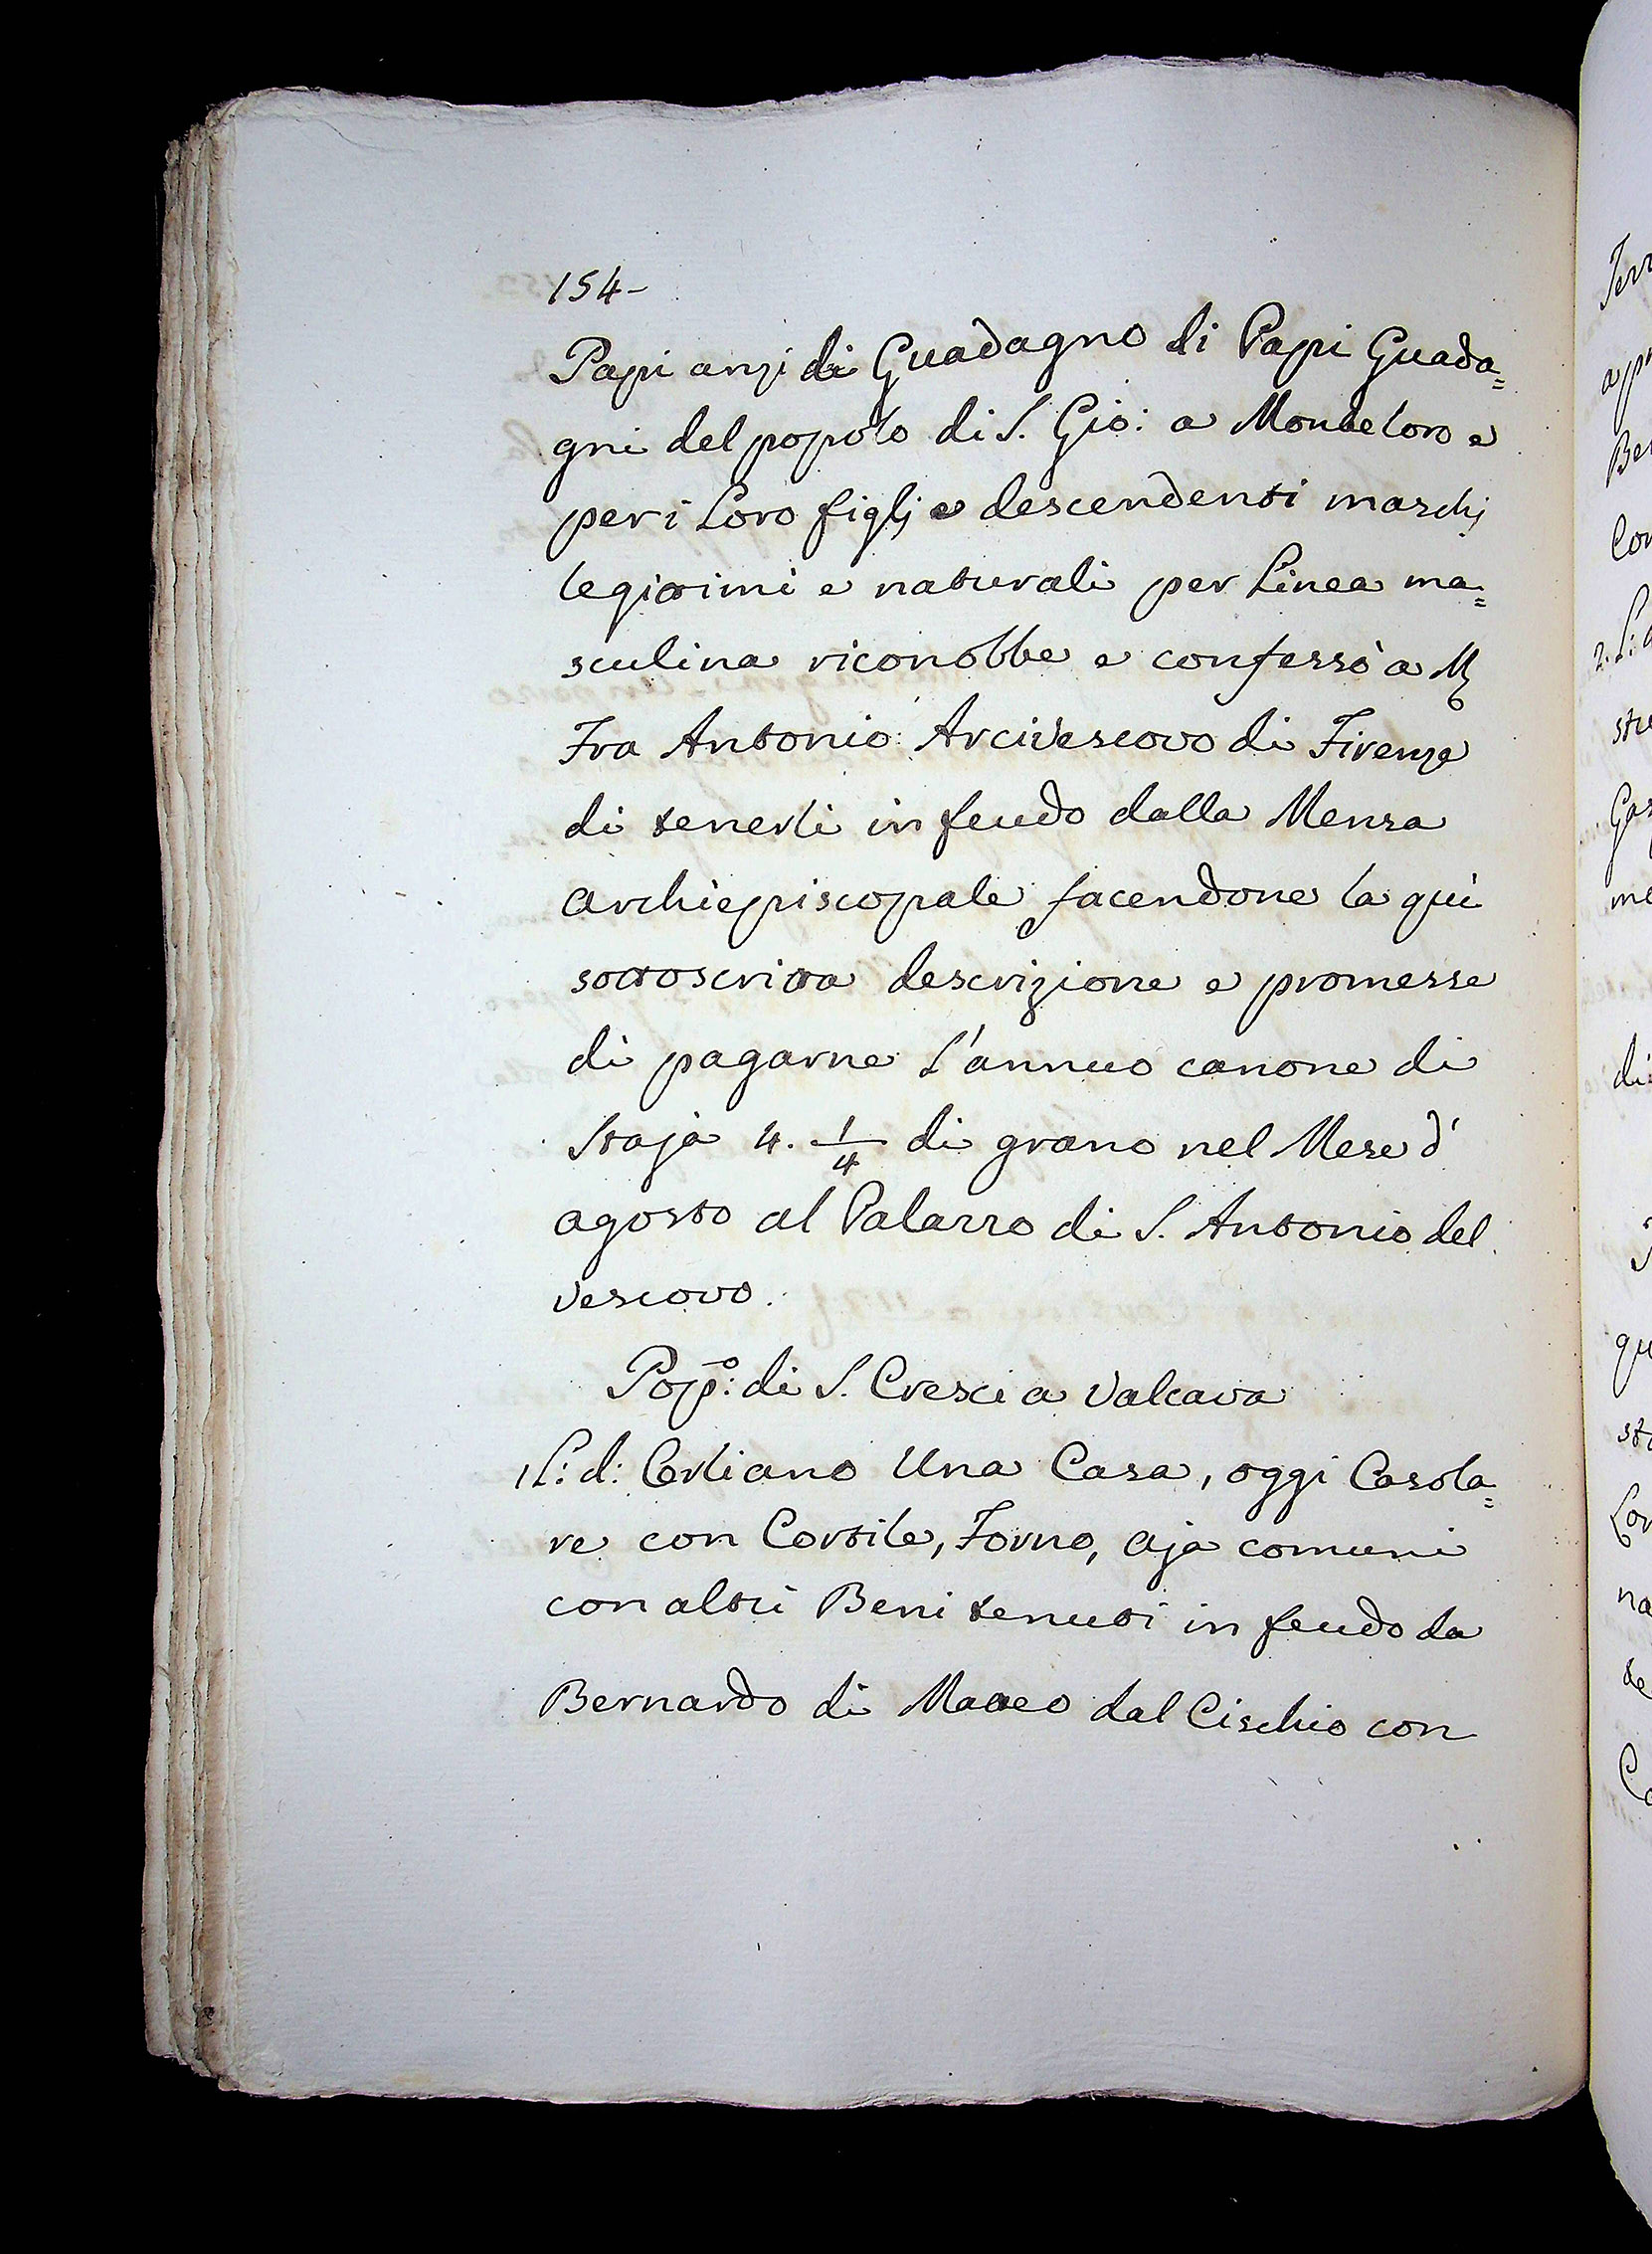 154-
Papi anzi di Guadagno di Papi Guada=
gni del popolo di S. Gio: a Monteloro e
per i Loro figlj e descendenti maschj
legittimi e naturali per Linea ma=
sculina riconobbe e confessò a M
Fra Antonio Arcivescovo di Firenze
di tenerli in feudo dalla Mensa
Archiepiscopale facendone la quì
sottoscritta descrizione e promesse
di pagarne L'annuo canone di
Staja 4. 1/4 di grano nel Mese d'
agosto al Palazzo di S. Antonio del
Vescovo.
Popo: di S. Cresci a Valcava
1 L: d: Corliano Una Casa, oggi Casola=
re con Cortile, Forno, Aja comuni
con altri Beni tenuti in feudo da
Bernardo di Matteo dal Cischio con